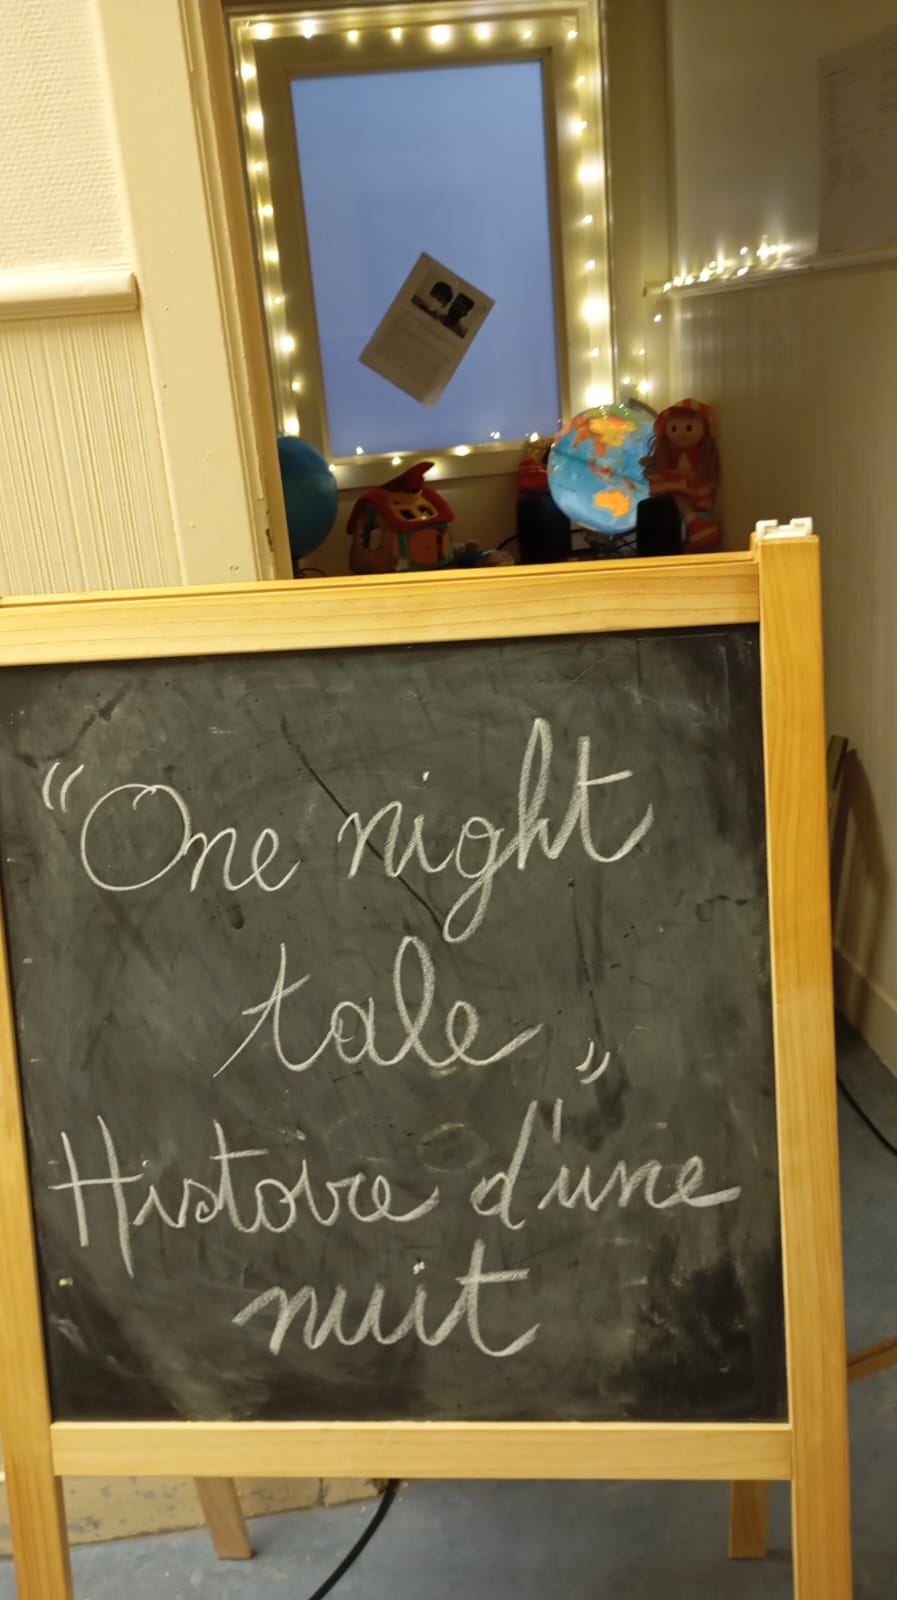 “One night
tale”
Histoire d'une
nuit